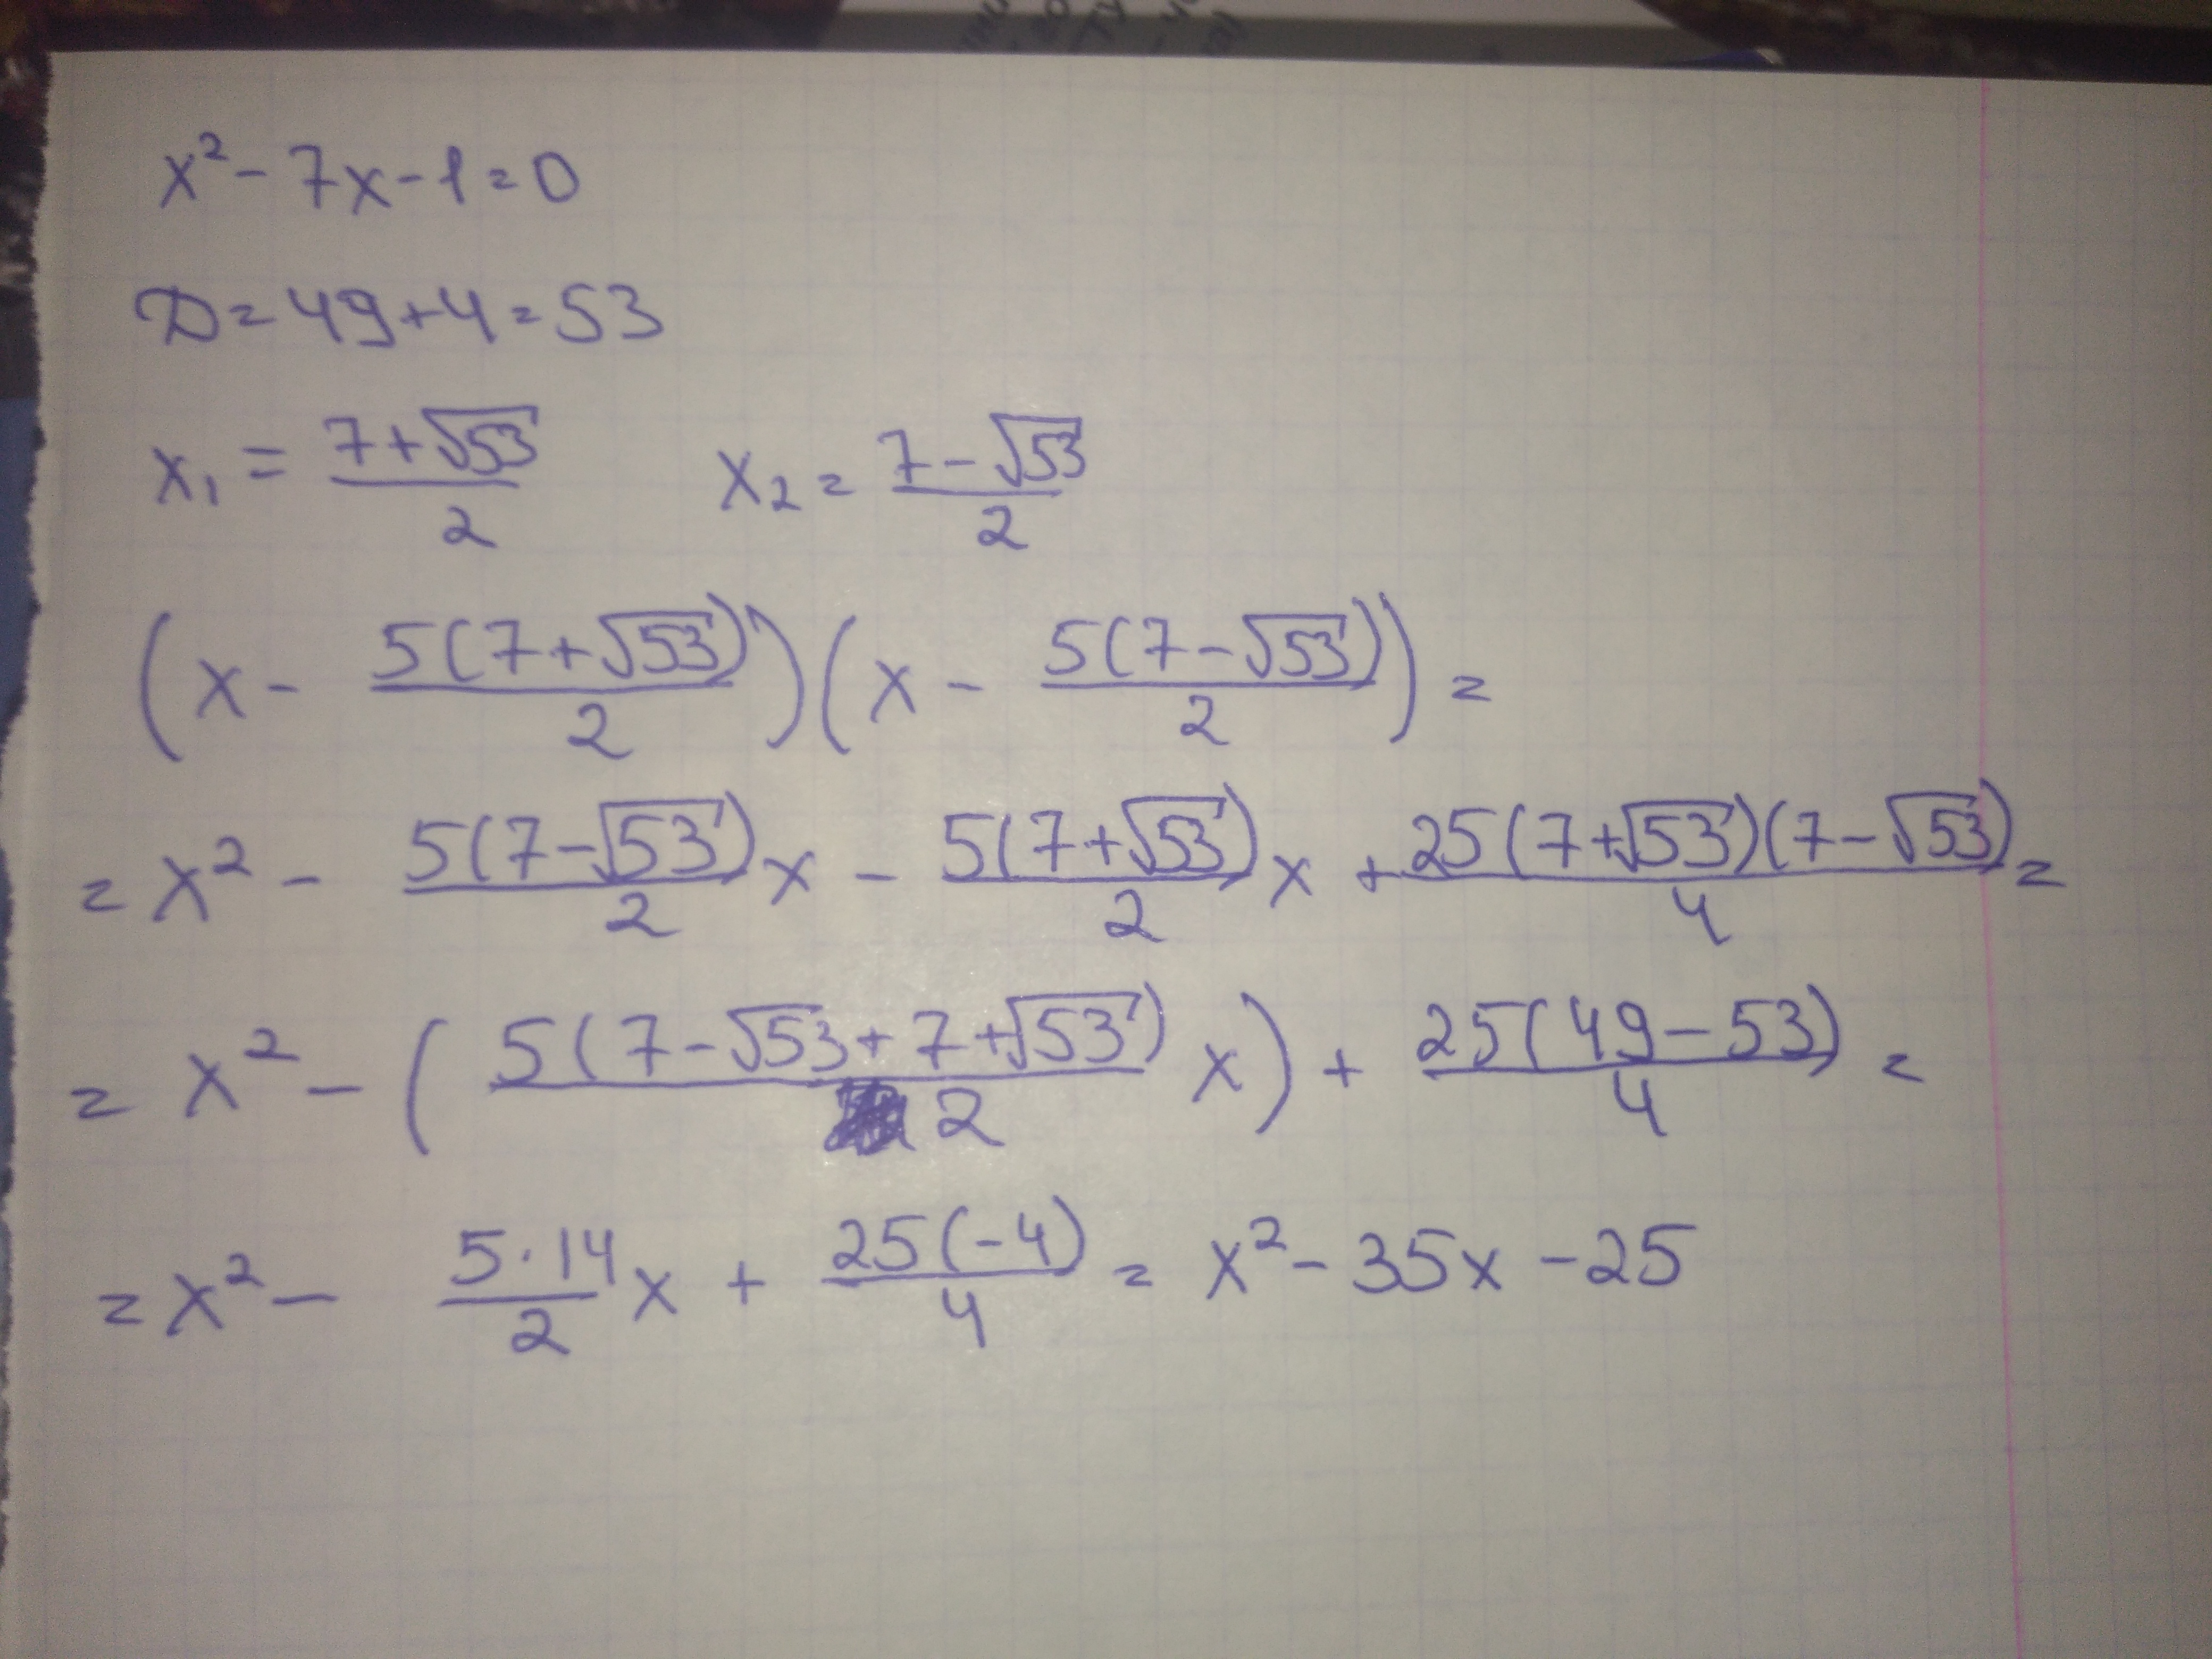 x² - 7x - 1 = 0
D = 49 + 4 = 53
x₁ = (7 + √53)/2    x₂ = (7 - √53)/2
(x - 5(7 + √53)/2)(x - 5(7 - √53)/2) =
= x² - 5(7 - √53)/2 x - 5(7 + √53)/2 x + 25(7 + √53)(7 - √53)/4 =
= x² - (5(7 - √53 + 7 + √53)/2 x) + 25(49 - 53)/4 =
= x² - 5·14/2 x + 25(-4)/4 = x² - 35x - 25